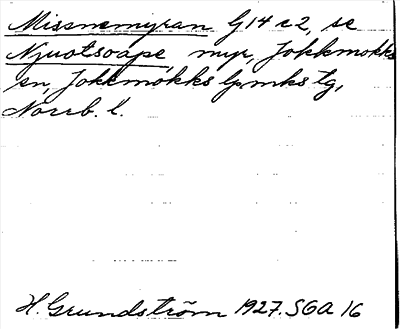 Missnemyran G14 c2, se
Njuotsoape, myr, Jokkmokks
sn, Jokkmokks lpmks tg,
Norrb. l.
H. Grundström 1927. SOA 16